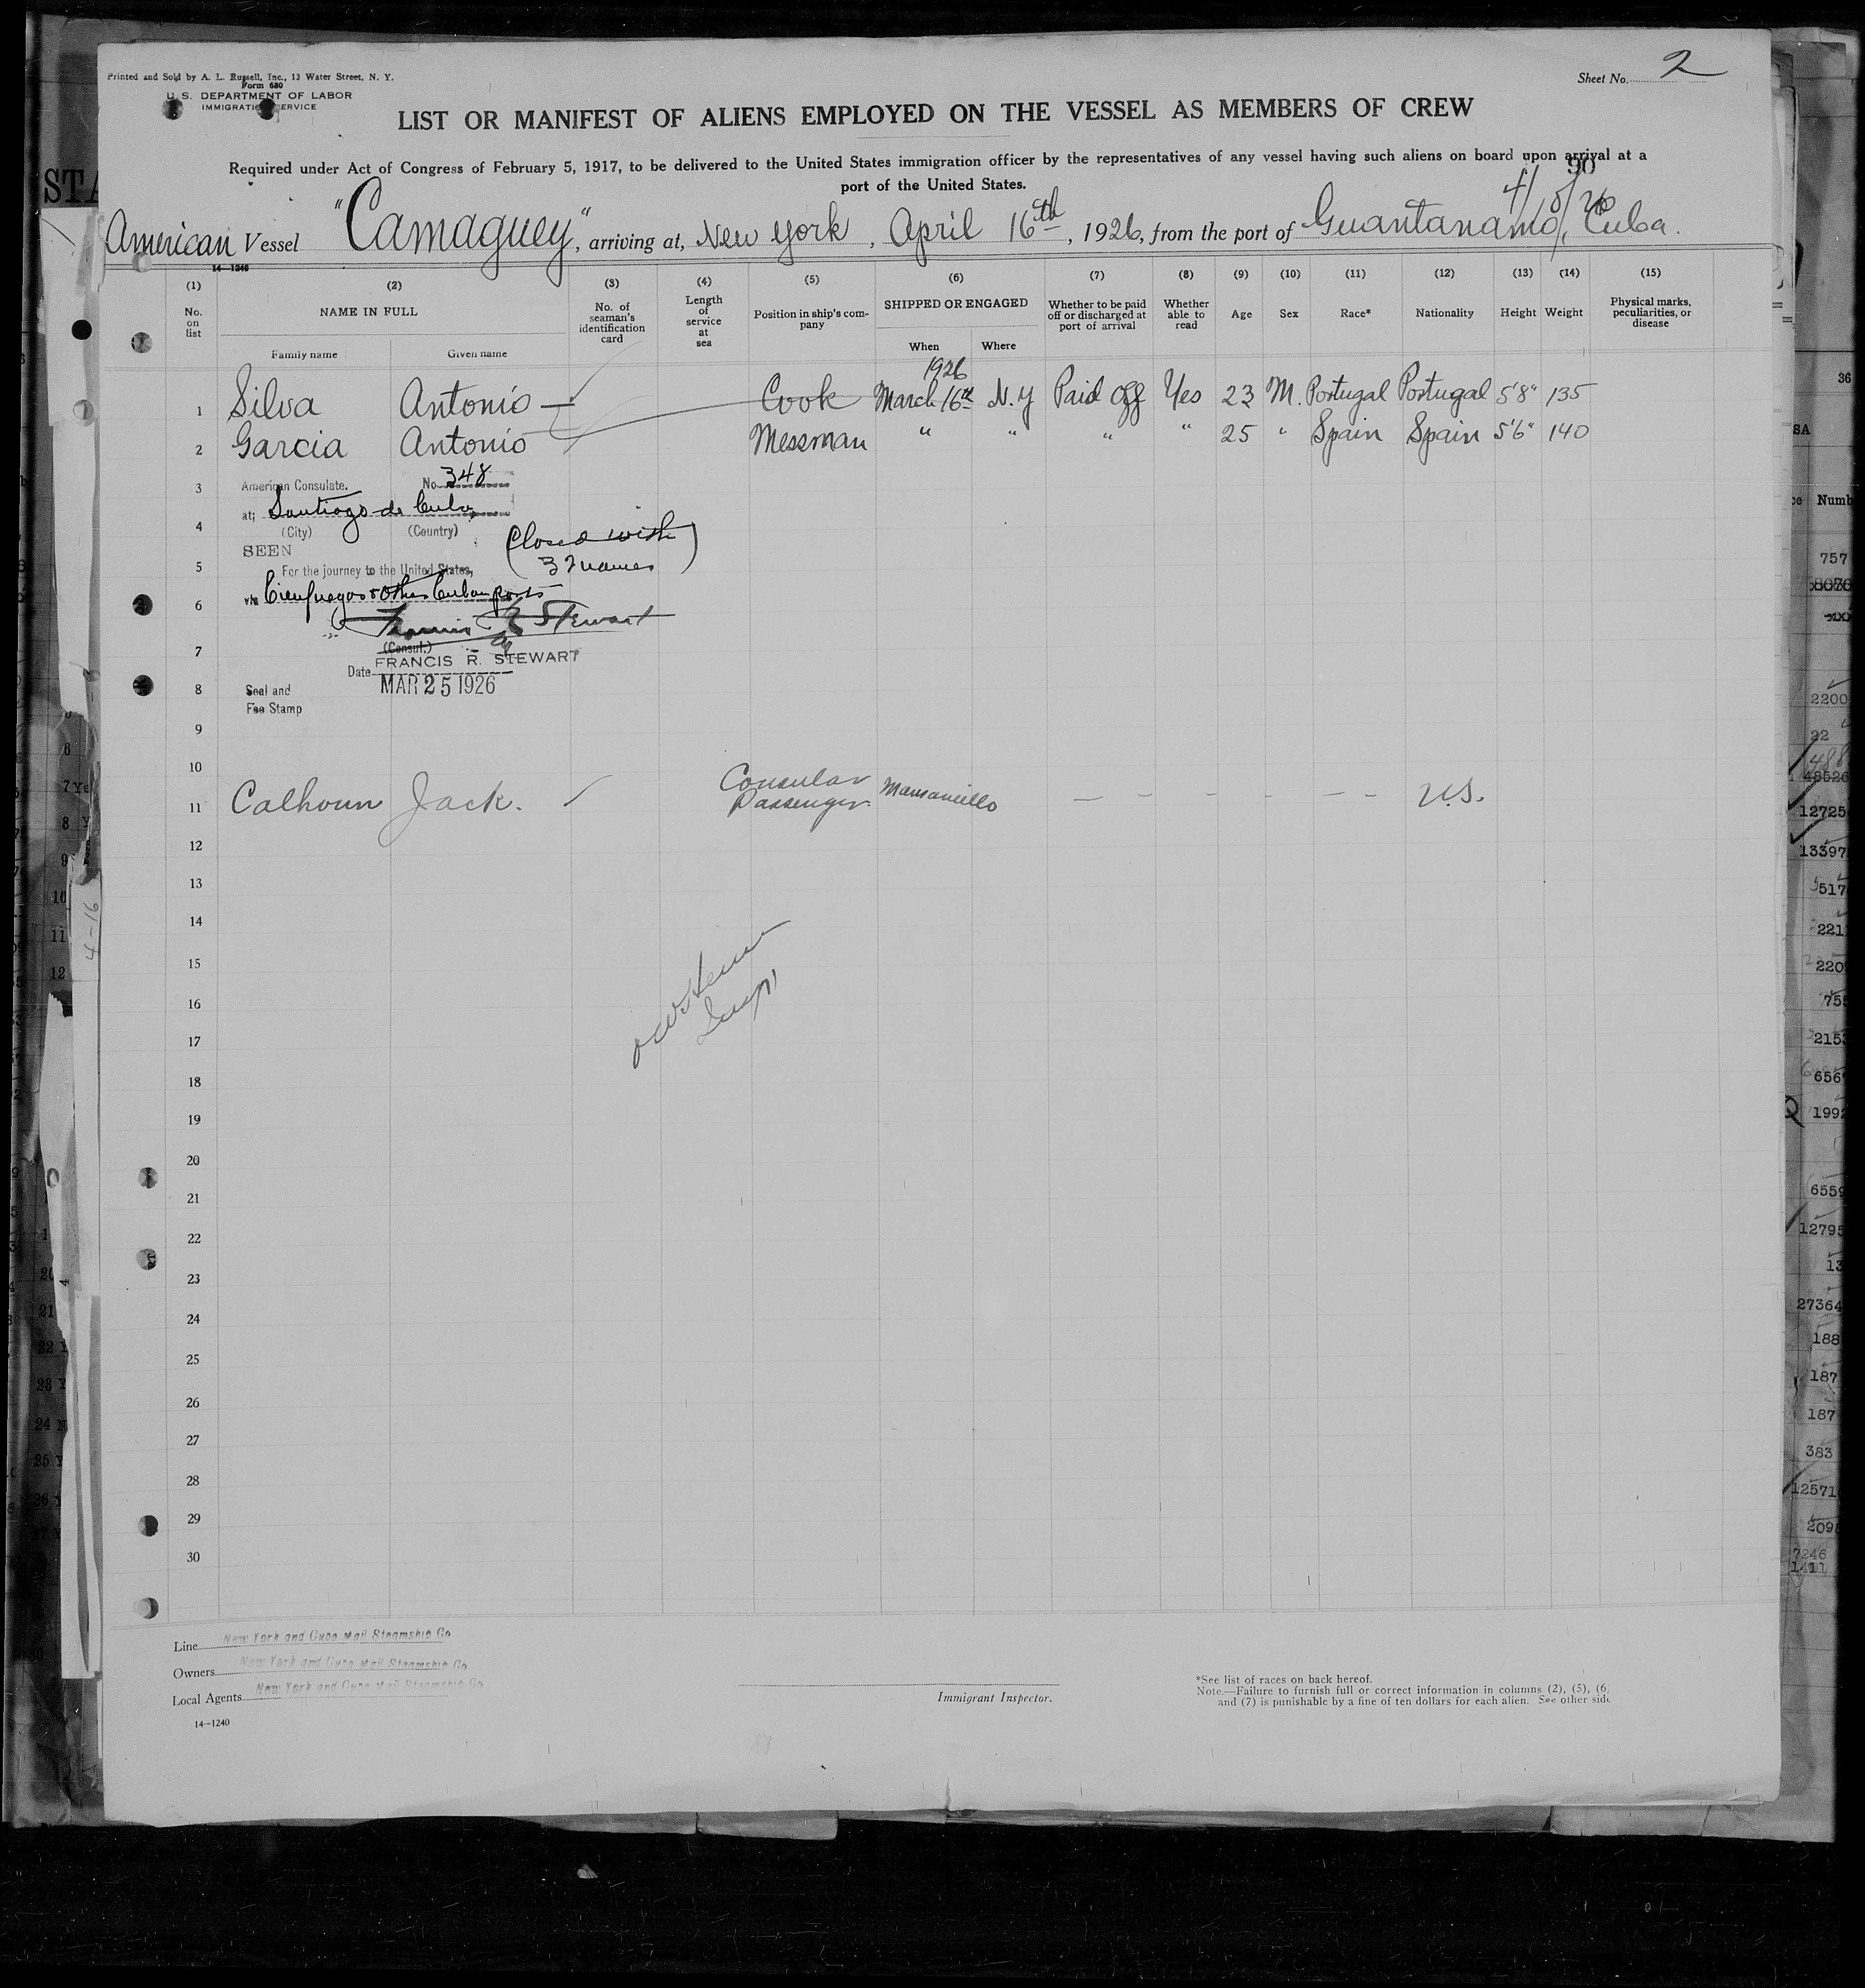 Printed and Sold by A. L. Russell, Inc., 13 Water Street, N. Y.
Form 680
U. S. DEPARTMENT OF LABOR
IMMIGRATION SERVICE
Sheet No. 2
LIST OR MANIFEST OF ALIENS EMPLOYED ON THE VESSEL AS MEMBERS OF CREW
Required under Act of Congress of February 5, 1917, to be delivered to the United States immigration officer by the representatives of any vessel having such aliens on board upon arrival at a
port of the United States.
90
American Vessel "Camaguey", arriving at, New York, April 16th, 1926, from the port of Guantanamo, Cuba.
14—1240
(1) (2) (3) (4) (5) (6) (7) (8) (9) (10) (11) (12) (13) (14) (15)
No. on list NAME IN FULL No. of seaman's identification card Length of service at sea Position in ship's company SHIPPED OR ENGAGED Whether to be paid off or discharged at port of arrival Whether able to read Age Sex Race* Nationality Height Weight Physical marks, peculiarities, or disease
Family name Given name When Where
1926
1 Silva Antonio Cook March 16th N.Y Paid Off Yes 23 M. Portugal Portugal 5'8" 135
2 Garcia Antonio Messman " " " " 25 " Spain Spain 5'6" 140
3 American Consulate. No. 348
at; Santiago de Cuba
4 (City) (Country)
SEEN (Closed with
5 For the journey to the United States, 32 names)
6 via Cienfuegos & Other Cuban ports
Francis R Stewart
7 (Consul.)
FRANCIS R. STEWART
Date MAR 25 1926
8 Seal and
Fee Stamp
9
10
11 Calhoun Jack. Consular Passenger. Mansanillo — — — — — — U.S.
12
13
14
15
16
17
18
19
20
21
22
23
24
25
26
27
28
29
30
Line New York and Cuba Mail Steamship Co
Owners New York and Cuba Mail Steamship Co
Local Agents New York and Cuba Mail Steamship Co
14—1240
Immigrant Inspector.
*See list of races on back hereof.
Note.—Failure to furnish full or correct information in columns (2), (5), (6
and (7) is punishable by a fine of ten dollars for each alien. See other side